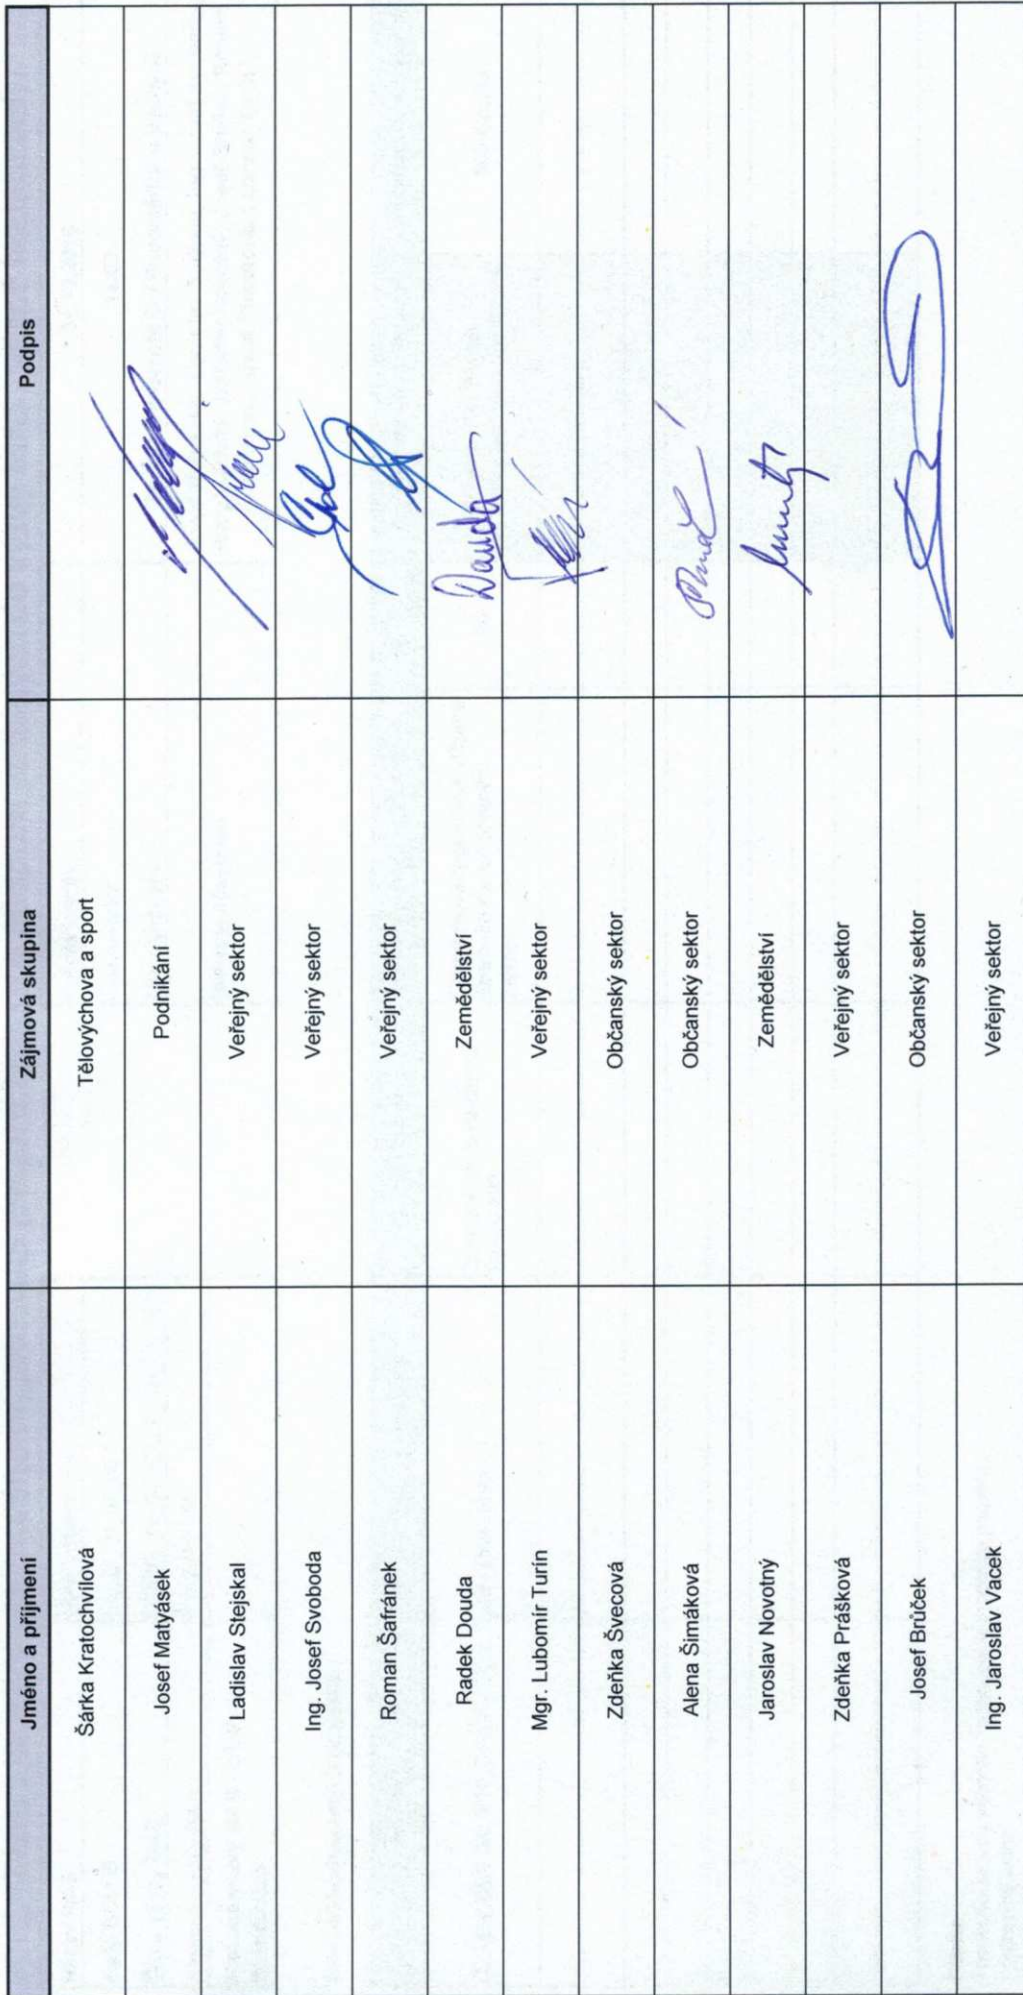 Jméno a příjmení Zájmová skupina Podpis
Šárka Kratochvílová Tělovýchova a sport
Josef Matyásek Podnikání
Ladislav Stejskal Veřejný sektor
Ing. Josef Svoboda Veřejný sektor
Roman Šafránek Veřejný sektor
Radek Douda Zemědělství Douda
Mgr. Lubomír Turín Veřejný sektor
Zdeňka Švecová Občanský sektor
Alena Šimáková Občanský sektor
Jaroslav Novotný Zemědělství
Zdeňka Prášková Veřejný sektor
Josef Brůček Občanský sektor
Ing. Jaroslav Vacek Veřejný sektor